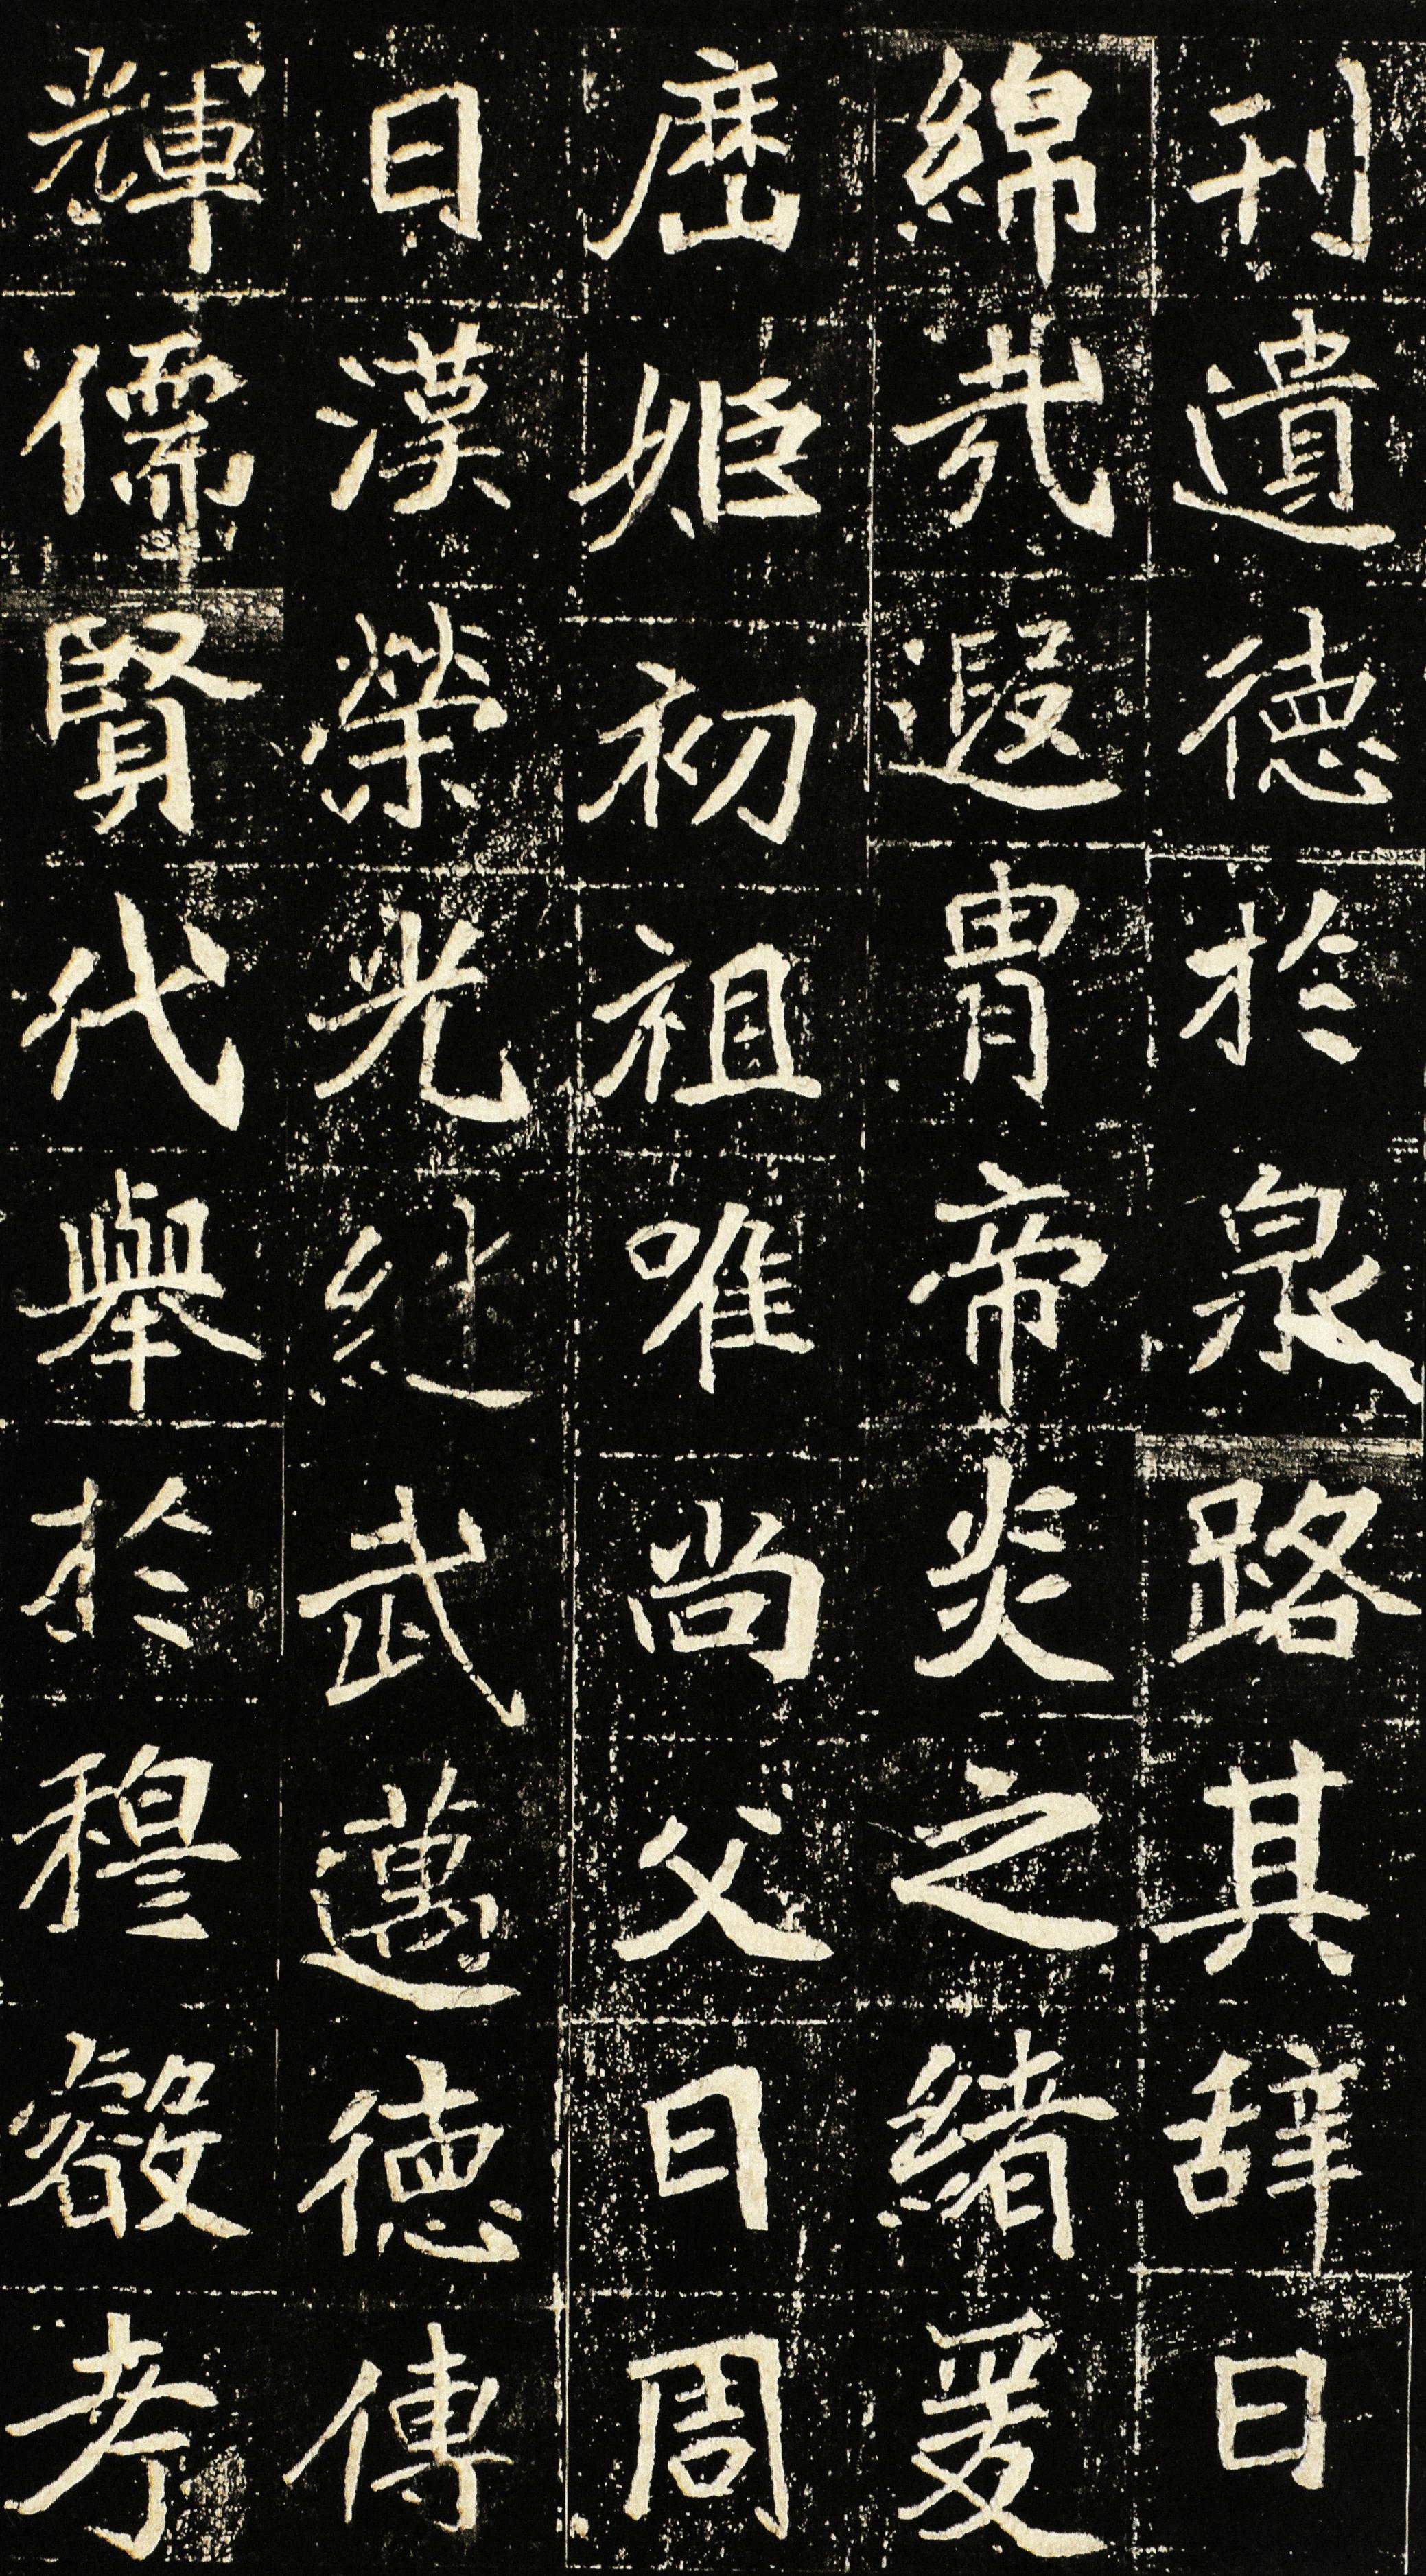 刊遺德於泉路其辞曰
綿㢤遐胄帝炎之緒爰
歷姬初祖唯尚父曰周
曰漢榮光継武邁德傳
輝儒賢代舉於穆叡考